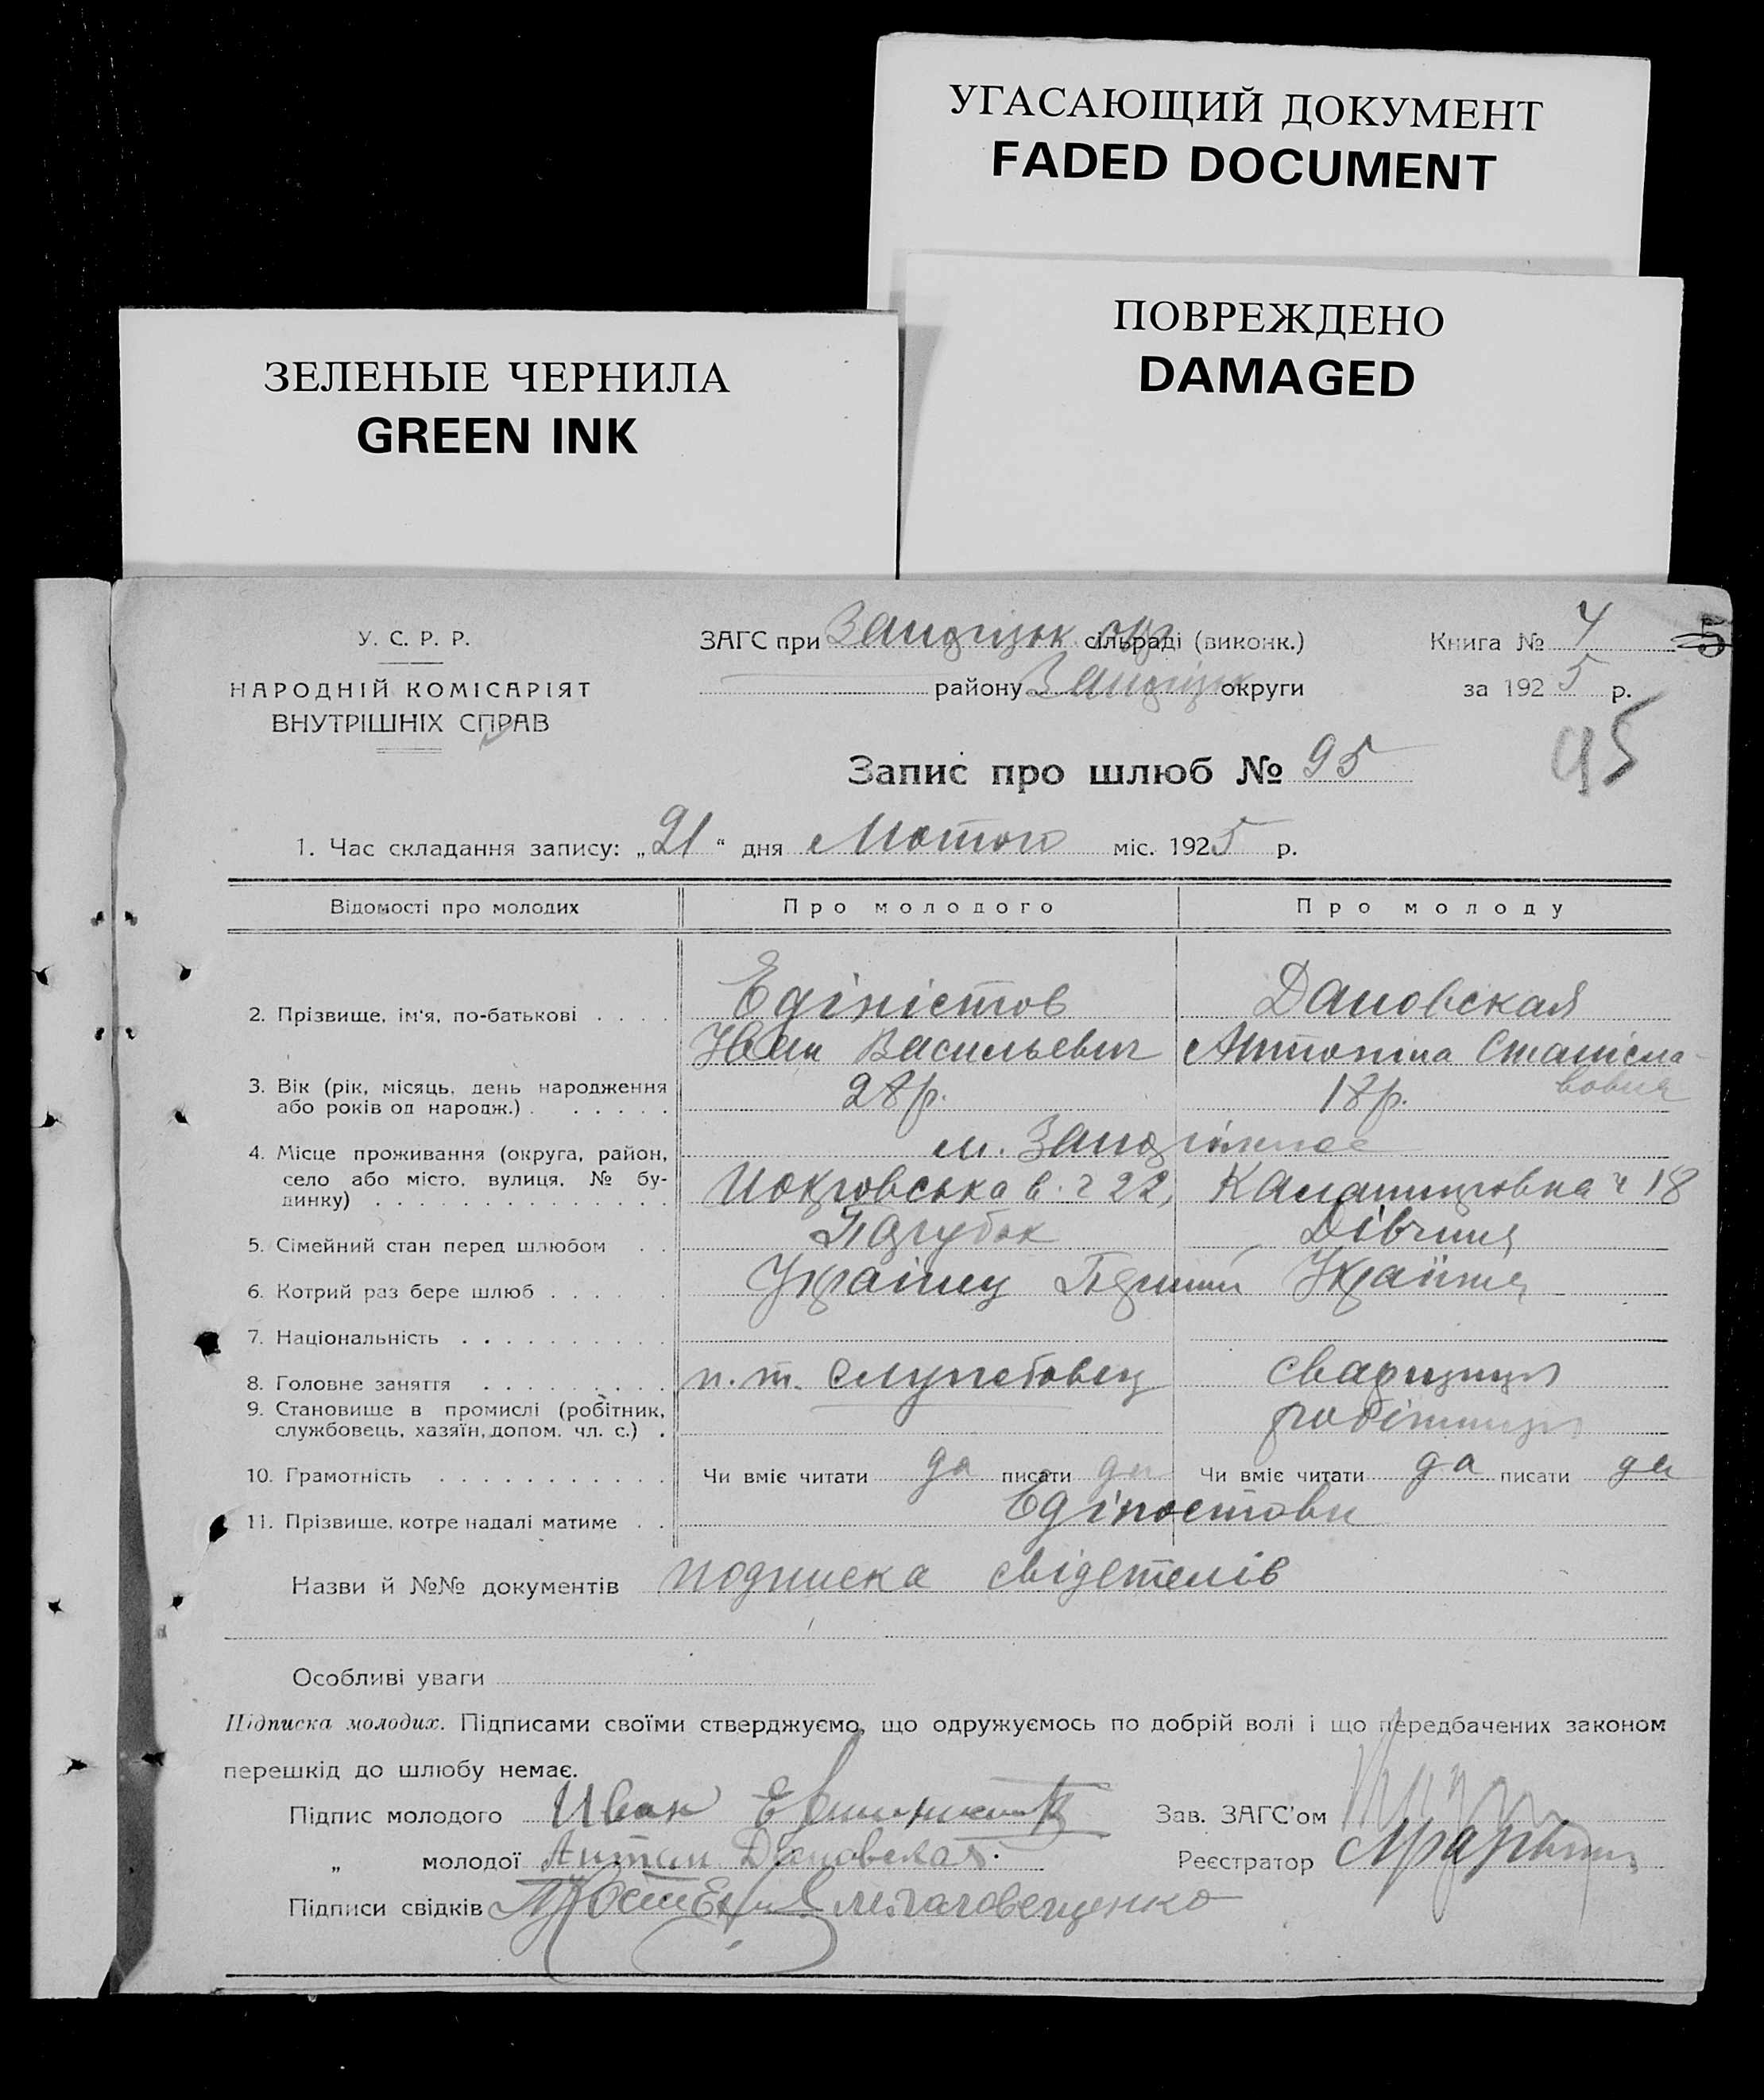 УГАСАЮЩИЙ ДОКУМЕНТ
FADED DOCUMENT
ПОВРЕЖДЕНО
DAMAGED
ЗЕЛЕНЫЕ ЧЕРНИЛА
GREEN INK
У. С. Р. Р.
НАРОДНІЙ КОМІСАРІЯТ
ВНУТРІШНІХ СПРАВ
ЗАГС при Запоріжж окр сільраді (виконк.)
району Запоріжж округи
Книга № 4
за 1925 р.
5
Запис про шлюб № 95
95
1. Час складання запису: „21“ дня Лютого міс. 1925 р.
Відомості про молодих Про молодого Про молоду
2. Прізвище, ім'я, по-батькові . . . . Едіністов Дановская
Іван Васильевич Антоніна Станісла-
вовна
3. Вік (рік, місяць, день народження
або років од народж.) . . . . . . 28 р. 18 р.
4. Місце проживання (округа, район,
село або місто, вулиця, № бу-
динку) . . . . . . . . . . . . . . м. Запоріжжя
Покровська в. ч 22, 18
5. Сімейний стан перед шлюбом . . Парубок Дівчина
6. Котрий раз бере шлюб . . . . . . Українц Перший Українка
7. Національність . . . . . . . . . .
8. Головне заняття . . . . . . . . . п. т. службовец
9. Становище в промислі (робітник,
службовець, хазяїн, допом. чл. с.) . робітниця
10. Грамотність . . . . . . . . . . . Чи вміє читати да писати да Чи вміє читати да писати да
11. Прізвище, котре надалі матиме . . Едіністови
Назви й №№ документів подписка свідетелів
Особливі уваги
Підписка молодих. Підписами своїми стверджуємо, що одружуємось по добрій волі і що передбачених законом
перешкід до шлюбу немає.
Підпис молодого Иван Единистов
Зав. ЗАГС'ом
„ молодої Антон Дановская.
Реєстратор
Підписи свідків